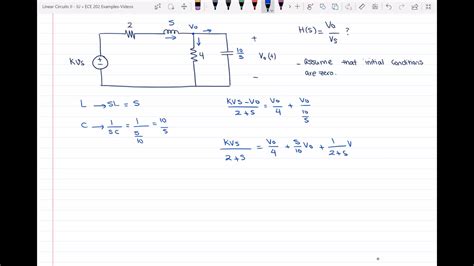 Linear Circuits II - SU - ECE 202 Examples-Videos
2
S
Vo
+
H(S) = Vo / Vs ?
KVs
+
-
4
10/S
Vo(t)
-
- assume that initial conditions are zero.
L → SL = S
C → 1/SC = 1/(S/10) = 10/S
(KVS - Vo)/(2+S) = Vo/4 + Vo/(10/S)
KVS/(2+S) = Vo/4 + S/10 Vo + 1/(2+S) V